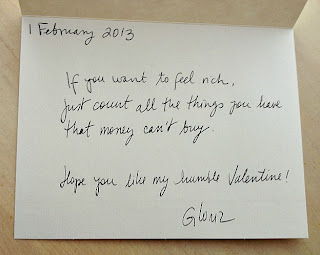 1 February 2013
If you want to feel rich,
just count all the things you have
that money can't buy.
Hope you like my humble Valentine!